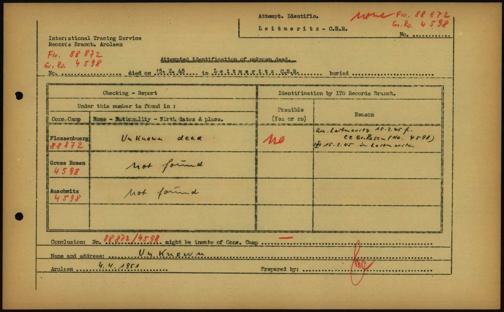 Attempt. Identific.
Leitmeritz - C.S.R.
none Fl. 88 872
Gr. Ro. 4598
No.
International Tracing Service
Records Branch, Arolsen
Fl. 88 872
Gr. Ro. 4598
Attempted identification of unknown dead.
No. died on 15.2.45 in Leitmeritz C.S.R. buried
Checking - Report
Identification by ITS Records Branch.
Under this number is found in:
Conc.Camp Name - Nationality - Birth dates & place.
Possible
(Yes or no)
Reason
Flossenbuerg
88872
Unknown dead
no
an. Leitmeritz 15.2.45 f.
CC Gr. Rosen (No. 4598)
15.2.45 in Leitmeritz
Gross Rosen
4598
not found
Auschwitz
4598
not found
Conclusion: Nr. 88872/4598 might be inmate of Conc. Camp —
Name and address: Unknown
Arolsen 4.4.1951 Prepared by: